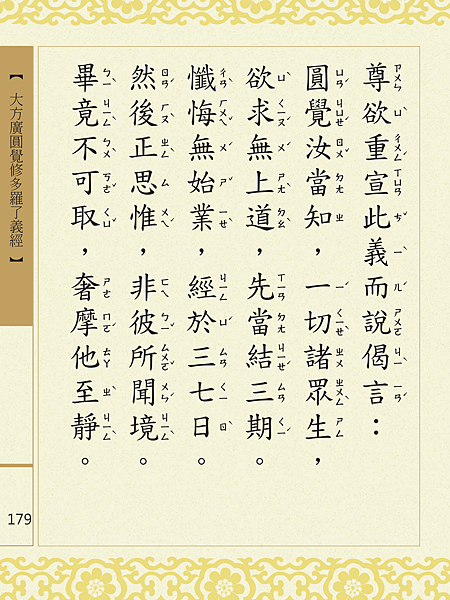 尊欲重宣此義而說偈言：
圓覺汝當知，一切諸眾生，
欲求無上道，先當結三期。
懺悔無始業，經於三七日。
然後正思惟，非彼所聞境。
畢竟不可取，奢摩他至靜。
【大方廣圓覺修多羅了義經】
179